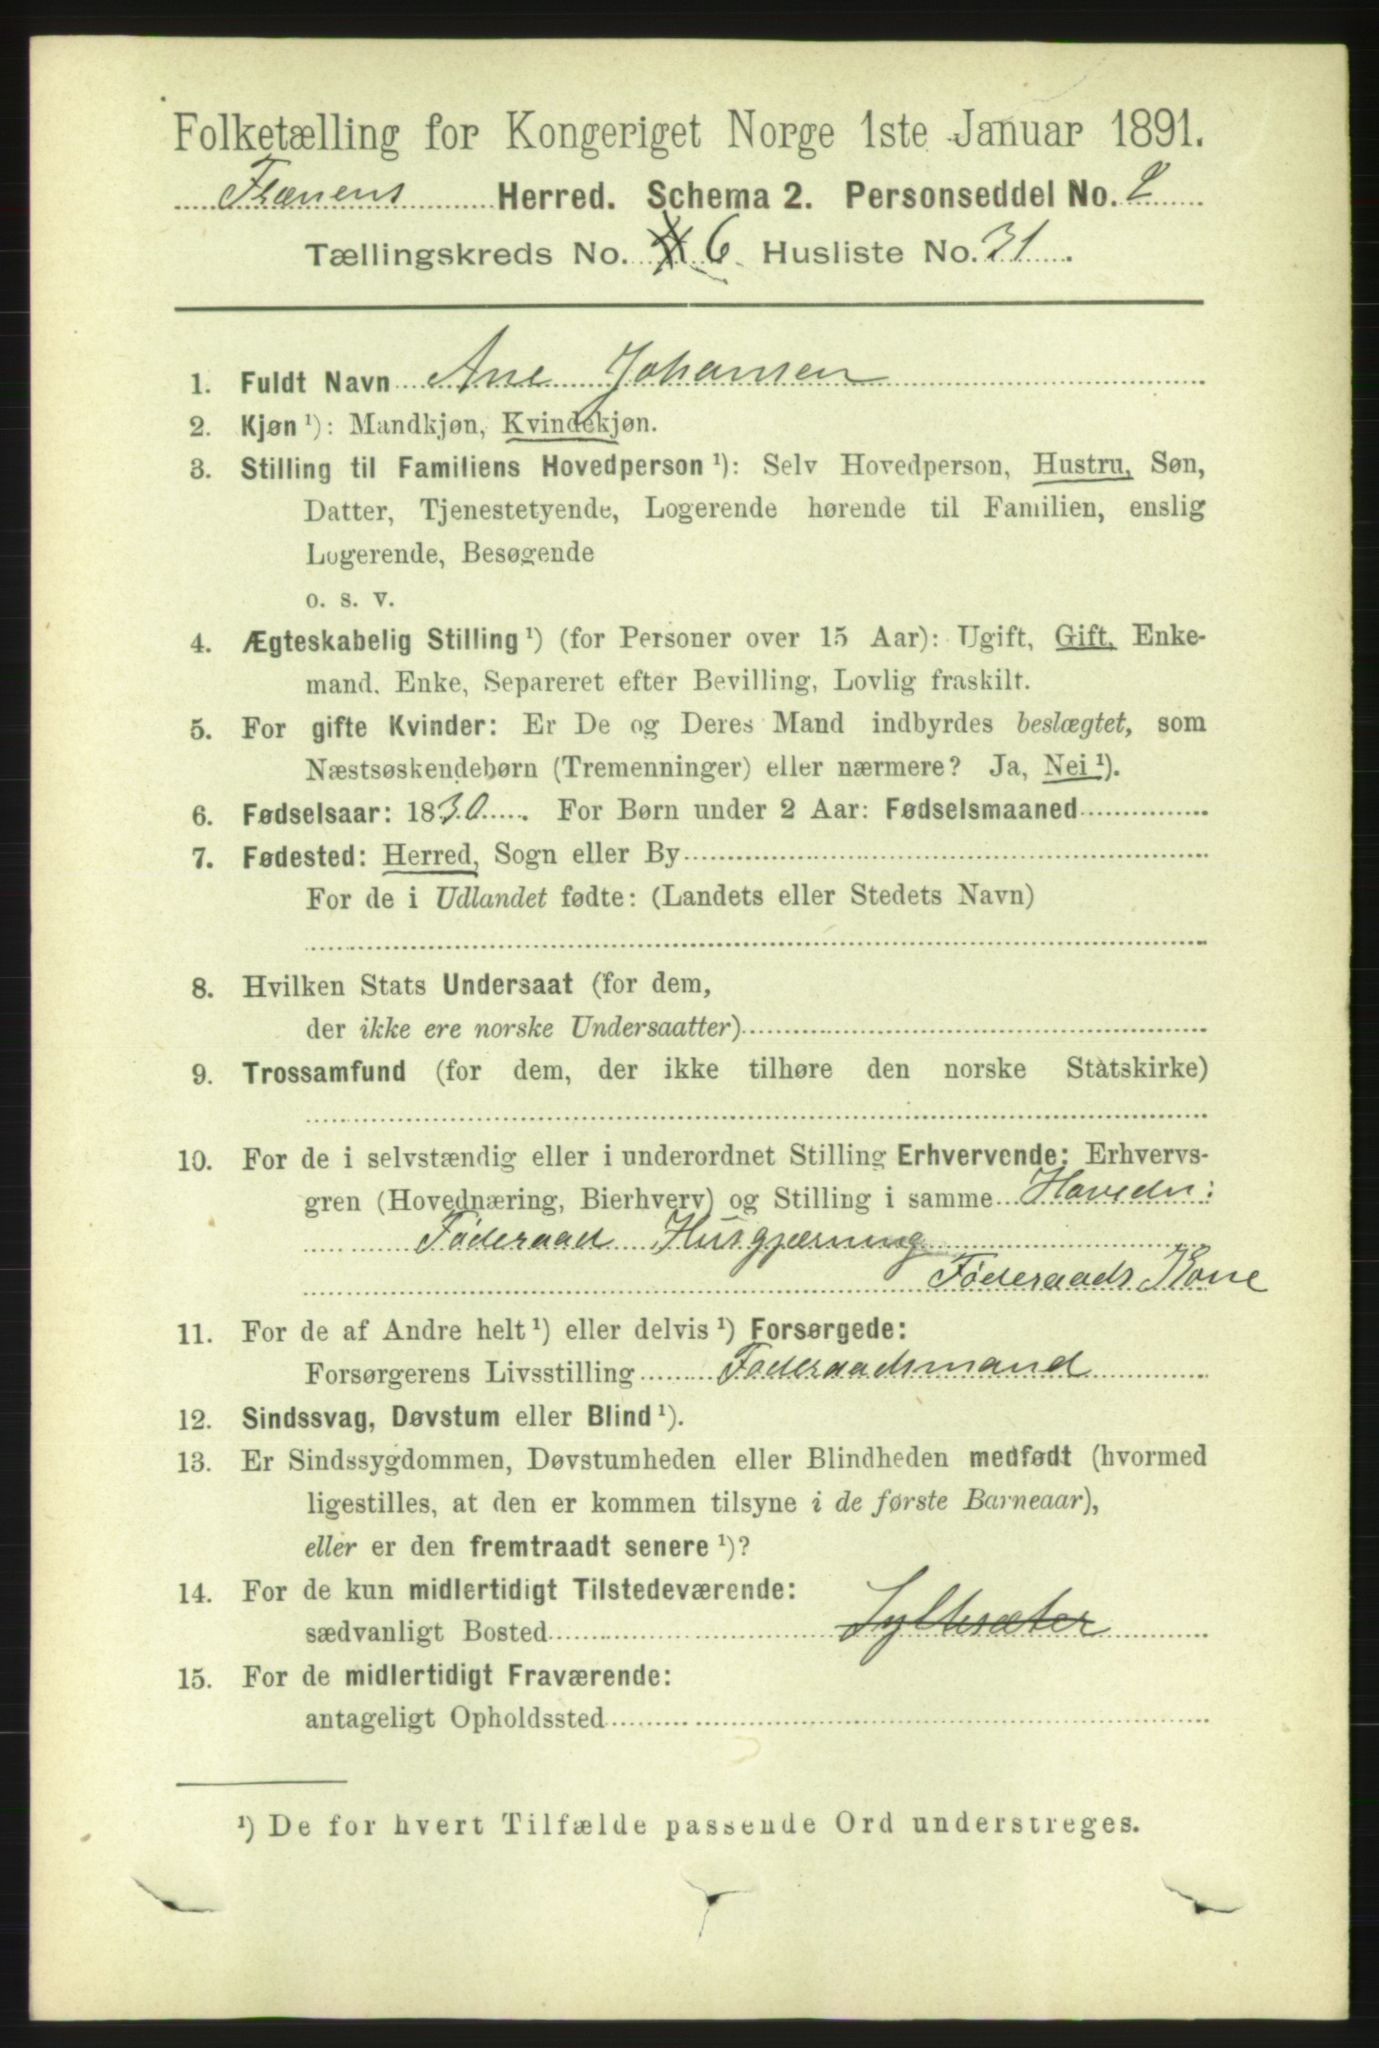 Folketælling for Kongeriget Norge 1ste Januar 1891.
Frænens Herred. Schema 2. Personseddel No. 2
Tællingskreds No. 6 Husliste No. 31.
1. Fuldt Navn Ane Johansen
2. Kjøn ¹): Mandkjøn, Kvindekjøn.
3. Stilling til Familiens Hovedperson ¹): Selv Hovedperson, Hustru, Søn,
Datter, Tjenestetyende, Logerende hørende til Familien, enslig
Logerende, Besøgende
o. s. v.
4. Ægteskabelig Stilling ¹) (for Personer over 15 Aar): Ugift, Gift, Enke-
mand, Enke, Separeret efter Bevilling, Lovlig fraskilt.
5. For gifte Kvinder: Er De og Deres Mand indbyrdes beslægtet, som
Næstsøskendebørn (Tremenninger) eller nærmere? Ja, Nei ¹).
6. Fødselsaar: 1830. For Børn under 2 Aar: Fødselsmaaned
7. Fødested: Herred, Sogn eller By
For de i Udlandet fødte: (Landets eller Stedets Navn)
8. Hvilken Stats Undersaat (for dem,
der ikke ere norske Undersaatter)
9. Trossamfund (for dem, der ikke tilhøre den norske Statskirke)
10. For de i selvstændig eller i underordnet Stilling Erhvervende: Erhvervs-
gren (Hovednæring, Bierhverv) og Stilling i samme Hovedn:
Föderaad Husgjærning
Föderaads Kone
11. For de af Andre helt ¹) eller delvis ¹) Forsørgede:
Forsørgerens Livsstilling Föderaadsmand
12. Sindssvag, Døvstum eller Blind ¹).
13. Er Sindssygdommen, Døvstumheden eller Blindheden medfødt (hvormed
ligestilles, at den er kommen tilsyne i de første Barneaar),
eller er den fremtraadt senere ¹)?
14. For de kun midlertidigt Tilstedeværende:
sædvanligt Bosted Syltesæter
15. For de midlertidigt Fraværende:
antageligt Opholdssted
¹) De for hvert Tilfælde passende Ord understreges.